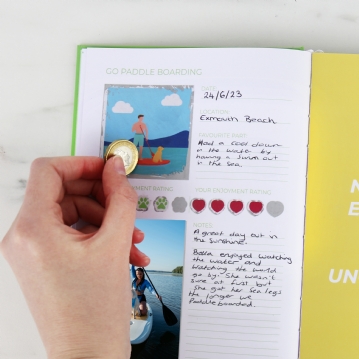 GO PADDLE BOARDING
24/6/23
LOCATION
Exmouth Beach
FAVOURITE PART
Had a cool down
in the water by
having a swim out
in the sea.
RIMENT RATING
YOUR EXPERIMENT RATING
NOTES
A great day out in
the sunshine.
Bella enjoyed watching
the water and
watching the world
go by. She wasn't
sure at first but
she got her sea legs
the longer we
Paddleboarded.
N
E
UN